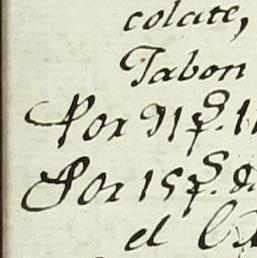 colate,
Tabon
Por 91 p.s 1
Por 15 p.s d
el Ca